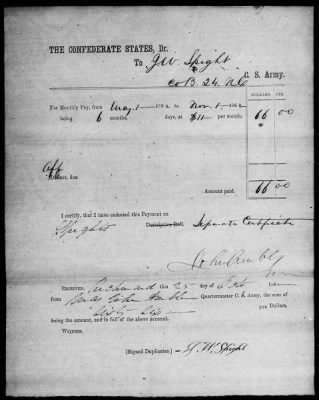 THE CONFEDERATE STATES, Dr.
To G.W. Spight
Co B. 24. N.C. C. S. Army.
DOLLARS CTS.
For Monthly Pay, from May 1 1862 to Nov. 1 1862
being 6 months days, at $11 per month, 66 00
Off
Deduct, due
Amount paid, 66 00
I certify, that I have endorsed this payment on
Spights Descriptive Roll. Separate Certificate
Received, Richmond this 25 day of 186
from John Quartermaster C. S. Army, the sum of
Sixty Six Dollars,
being the amount, and in full of the above account.
Witness,
(Signed Duplicates.) G. W. Spight